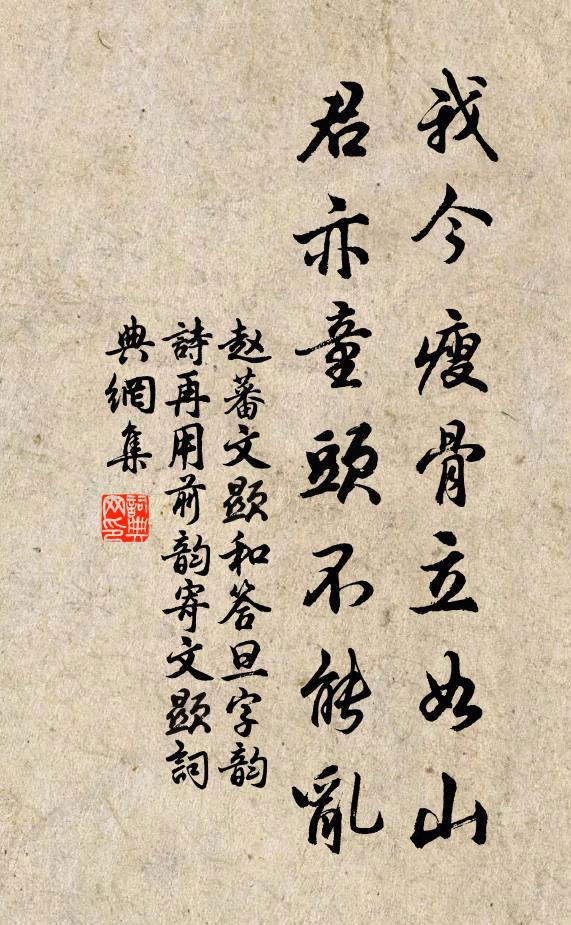 我今瘦骨立如山
君亦童頭不能亂
赵蕃文顯和答旦字韵
詩再用前韵寄文顯詞
典網集
詞典
网印